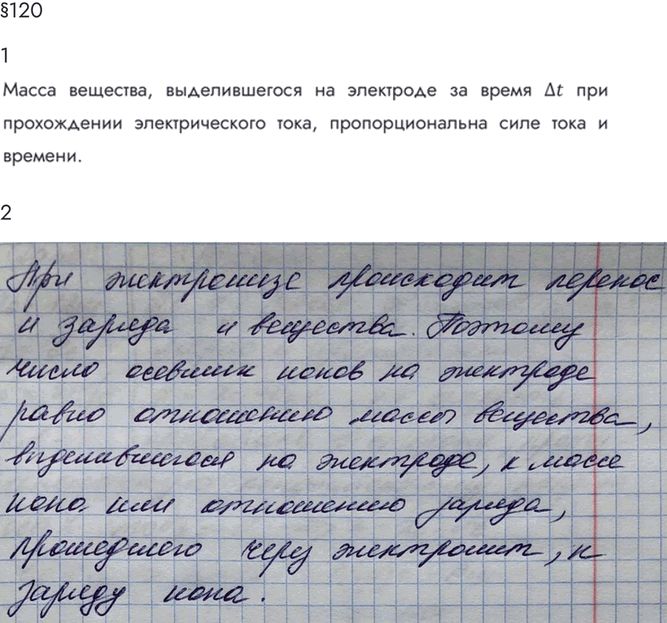 §120
1
Масса вещества, выделившегося на электроде за время Δt при
прохождении электрического тока, пропорциональна силе тока и
времени.
2
При электролизе происходит перенос
и заряда и вещества. Поэтому
число осевших ионов на электроде
равно отношению массы вещества,
выделившегося на электроде, к массе
иона или отношению заряда,
прошедшего через электролит, к
заряду иона.